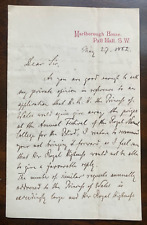 Marlborough House,
Pall Mall. S.W.
May 27, 1882
Dear Sir,
As you are good enough to ask
my private opinion in reference to an
application that H.R.H. the Princess of
Wales would give away the prizes
at the Annual Festival of the Royal Normal
College for the Blind, I venture to
your not bringing it forward as I feel sure
that Her Royal Highness would not be able
to give a favourable reply.
The number of similar requests annually
addressed to the Princess of Wales is
exceedingly large and Her Royal Highness